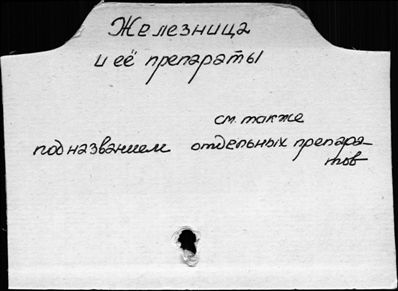 Железница
и её препараты
см. также
под названием отдельных препара-
тов